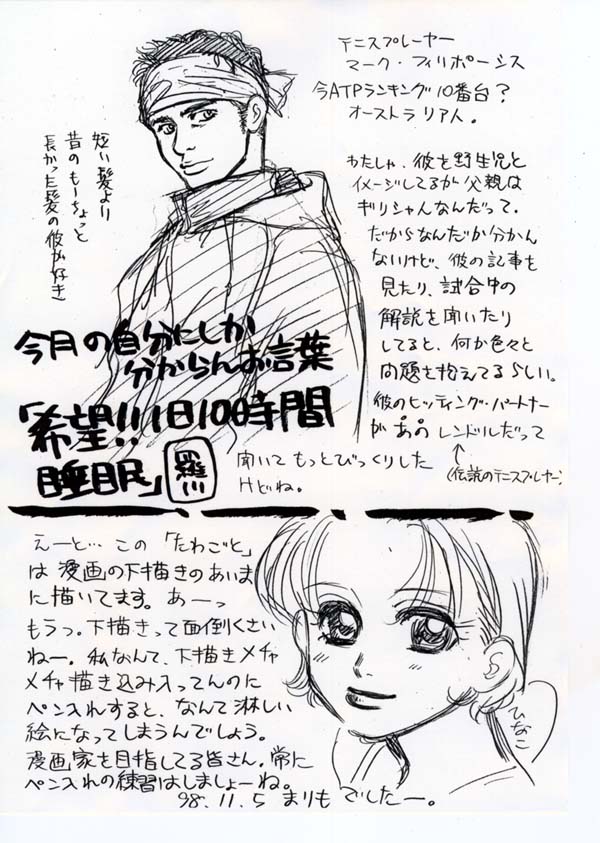 テニスプレーヤー
マーク・フィリポーシス
今ATPランキング10番台?
オーストラリア人。
短い髪より
昔のもーちょっと
長かった髪の彼が好き
わたしゃ、彼を野生児と
イメージしてるが父親は
ギリシャ人なんだって。
だからなんだか分かん
ないけど、彼の記事を
見たり、試合中の
解説を聞いたり
してると、何か色々と
問題を抱えてるらしい。
彼のヒッティング・パートナー
があのレンドルだって
(伝説のテニスプレーヤー)
聞いてもっとびっくりした
けどね。
今月の自分にしか
分からんお言葉
「希望!!1日100時間
睡眠」
えーと… この「たわごと」
は漫画の下描きのあいま
に描いてます。あーっ
もうっ。下描きって面倒くさい
ねー。私なんて、下描きメチャ
メチャ描き込み入ってんのに
ペン入れすると、なんて淋しい
絵になってしまうんでしょう。
漫画家を目指してる皆さん。常に
ペン入れの練習はしましょーね。
98.11.5 まりもでしたー。
ひなこ